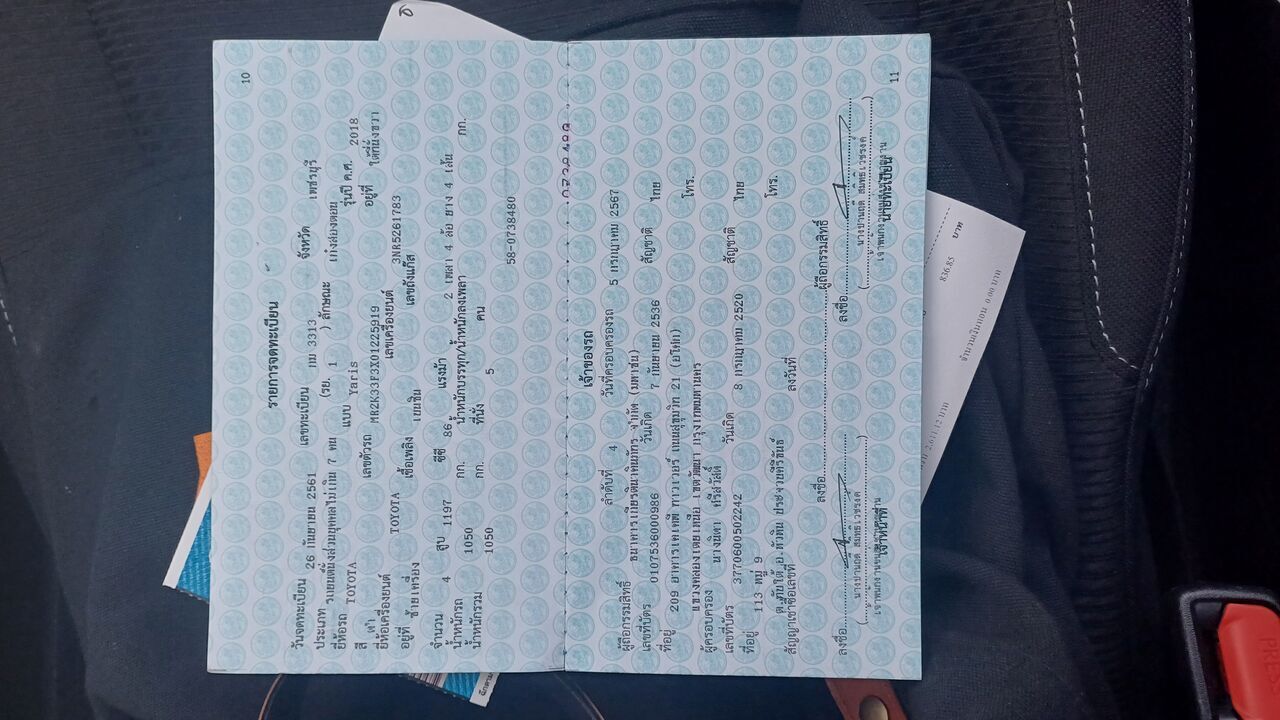 10
รายการจดทะเบียน
วันจดทะเบียน 26 กันยายน 2561 เลขทะเบียน กม 3313 จังหวัด เพชรบุรี
ประเภท รถยนต์นั่งส่วนบุคคลไม่เกิน 7 คน (รย. 1 ) ลักษณะ เก๋งสองตอน
ยี่ห้อรถ TOYOTA แบบ Yaris รุ่นปี ค.ศ. 2018
สี เลขตัวรถ MR2K33F3X01225919 อยู่ที่ ใต้ที่นั่งขวา
ยี่ห้อเครื่องยนต์ TOYOTA เลขเครื่องยนต์ 3NR5261783
อยู่ที่ ซ้ายเครื่อง เชื้อเพลิง เบนซิน เลขถังแก๊ส
จำนวน 4 สูบ 1197 ซีซี 86 แรงม้า 2 เพลา 4 ล้อ ยาง 4 เส้น
น้ำหนักรถ 1050 กก. น้ำหนักบรรทุก/น้ำหนักลงเพลา กก.
น้ำหนักรวม 1050 กก. ที่นั่ง 5 คน
58-0738480
เจ้าของรถ
ลำดับที่ 4 วันที่ครอบครองรถ 5 กรกฎาคม 2567
ผู้ถือกรรมสิทธิ์ ธนาคารเกียรตินาคินภัทร จำกัด (มหาชน)
เลขที่บัตร 0107536000986 วันเกิด 7 กันยายน 2536 สัญชาติ ไทย
ที่อยู่ 209 อาคารเคเคพี ทาวเวอร์ ถนนสุขุมวิท 21 (อโศก)
แขวงคลองเตยเหนือ เขตวัฒนา กรุงเทพมหานคร โทร.
ผู้ครอบครอง นางนิดา ศรีสวัสดิ์
เลขที่บัตร 3770600502242 วันเกิด 8 กรกฎาคม 2520 สัญชาติ ไทย
ที่อยู่ 113 หมู่ 9
ต.ทับใต้ อ.หัวหิน ประจวบคีรีขันธ์ โทร.
สัญญาเช่าซื้อเลขที่ ลงวันที่
ลงชื่อ ผู้ถือกรรมสิทธิ์
ลงชื่อ ลงชื่อ
นายทะเบียน
11
836.85 บาท
จำนวนเงินแอน 0.00 บาท
2,611.12 บาท
PRESS